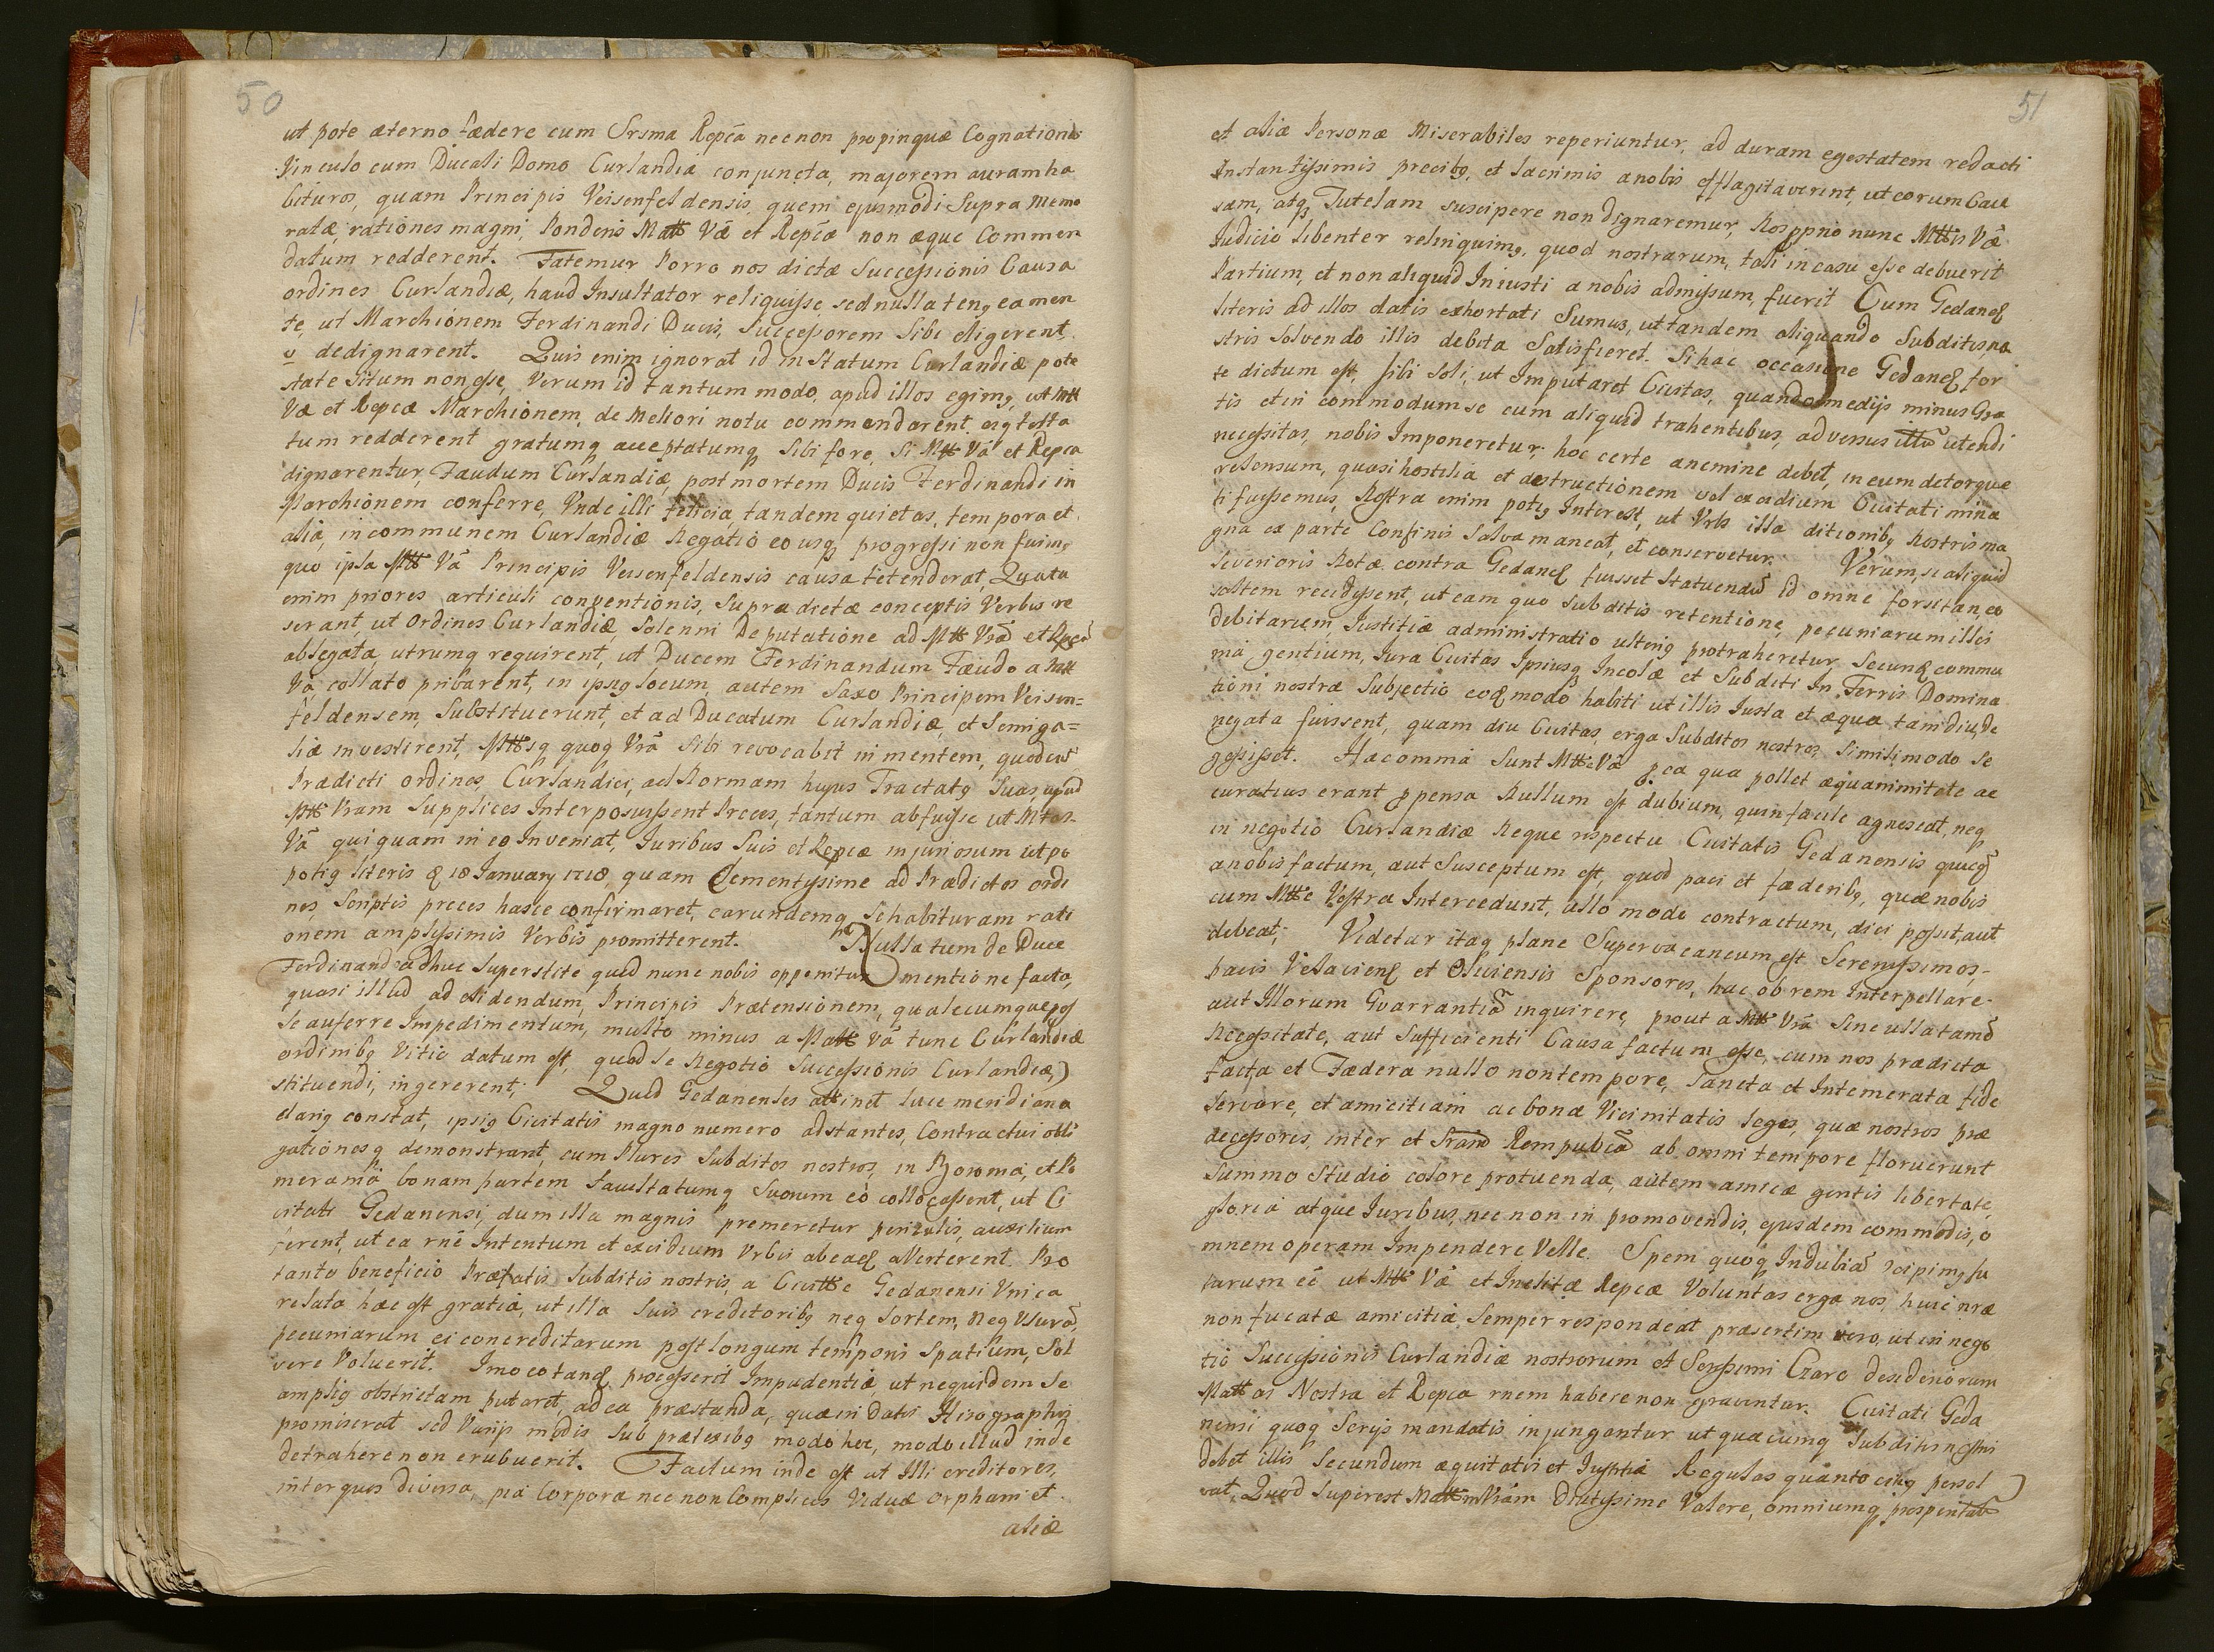 50
ut pote æterno fædere cum Srsma Repca necnon propinquæ Cognationis
Vinculo cum Ducali Domo Curlandiæ conjuncta, majorem auram ha
bituros, quam Principis Veisenfeldensis, quem ejusmodi Supra memo
ratæ, rationes magni, Ponderis Matti Væ et Repcæ non æque Commen
datum redderent. Fatemur Porro nos dictæ Successionis Causa
ordines Curlandiæ, haud Insultator reliquisse, sed nullaten9 ea men
te, ut Marchionem Ferdinandi Ducis, Successorem Sibi eligerent,
dedignarent. Quis enim ignorat id in Statum Curlandiæ pote
state situm non esse, Verum id tantummodo, apud illos egim9, ut Mtti
Væ et Repcæ Marchionem, de Meliori notu commendarent, eig testa
tum redderent gratumq acceptatumq Sibi fore, Si Mtt Va et Repca
dignarentur, Faudum Curlandiæ, post mortem Ducis Ferdinandi in
Marchionem conferre, Unde illi felicia, tandem quietas, tempora et
alia, in communem Curlandiæ Negotio eousq progressi non fuim9
quo ipsa Mtt Va Principis Veisenfeldensis causa tetenderat Quata
enim priores articuli conventionis, Supra dictæ conceptis Verbis re
serant, ut Ordines Curlandiæ, Solenni Deputatione ad Mtt Vrã et Repcã
ablegata, utrumq requirent, ut Ducem Ferdinandum Fæudo a Mtt
Va, collato privarent, in ipsig locum, autem Saxo Principem Veisen=
feldensem, Substituerunt, et ad Ducatum Curlandiæ, et Semiga=
liæ investirent, Mttsq quoq Vrã Sibi revocabit in mentem, quodcũ
Prædicti ordines, Curlandici, ad Normam hujus Tractat9 Suas apud
Mtt Vram Supplices Interposuissent Preces, tantum abfuisse ut Mtas
Vã quiquam in eo Inveniat, Juribus Suis et Repcæ injuriosum ut po
potig literis 18 January 1718, quam Clementissime ad Prædictos ordi
nes, Scriptis preces hasce confirmaret, earundemq Se habituram rati
onem amplissimis Verbis promitterent. Nulla tum de Duce
Ferdinando adhuc Superstite quod nunc nobis opponitur mentione facta,
quasi illud ad elidendum, Principis Prætensionem, qualecumque pos
se auferre Impedimentum, multo minus a Matt Vã tunc Curlandiæ
ordinib9 Vitio datum est, quod se Negotio Successionis Curlandiæ
stituendi, ingererent. Quid Gedanenses attinet luce meridiana
clarig constat, ipsig Civitatis magno numero adstantes, Contractui obli
gationesq demonstrant, cum Plures Subditos nostros, in Borroma, et Po
merama bonam partem facultatumq Suorum eò collocassent, ut Ci
vitati Gedanensi, dum illa magnis premeretur periculis, auxilium
ferent, ut ea rnẽ Intentum et excidium Urbis ab eaq averterent. Pro
tanto beneficio Præfatis Subditis nostris, a Civtte Gedanensi Unica
relata hæc est gratia, ut illa Suis creditorib9 neq Sortem, Neq Usurã,
pecuniarum ei concreditarum post longum temporis Spatium, Sol
vere Voluerit. Imo eo tanq processerit Impudentiæ, ut nequidem Se
amplig obstrictam putaret, ad ea præstanda, quæ in datis Hirographis
promiserat sed Varijs modis Sub prætexib9 modo hoc, modo illud inde
detrahere non erubuerit. Factum inde est ut Illi creditores,
inter quos diversa, pia Corpora nec non Complices Viduæ orphani et
aliæ
51
et aliæ Personæ Miserabiles reperiuntur, ad duram egestatem redacti
Instantissimis precib9, et lacrimis a nobis efflagitaverint, ut eorum Cau
sam, atq Tutelam suscipere non dignaremur, Nos nunc Mttis Væ
Judicio libenter relinquim9, quod nostrarum, tali in casu esse debuerit
Partium, et non aliquid Iniusti a nobis admissum, fuerit Cum Gedanes
literis ad illos datis exhortati Sumus, ut tandem aliquando Subditis no
stris Solvendo illis debita Satisfieret. Si hac occasione Gedanes for
te dictum est, sibi soli, ut Imputaret Civitas, quando medijs minus Gra
tis et in commodum se cum aliquid trahentibus, adversus illũ utendi
necessitas, nobis Imponeretur, hoc certe a nemine debet, in eum detorque
ri sensum, quasi hostilia et destructionem vel excidium Civitati mina
ti fuissemus, Nostra enim potig Interest, ut Urbs illa ditionib9 Nostris ma
gna ex parte Confinis Salva maneat, et conservetur. Verum, si aliquid
Severioris Notæ contra Gedanes fuisset Statuendũ id omne forsitan, eo
saltem recidissent, ut eam quo Subditis retentione, pecuniarum illis
debitarum, Justitiæ administratio ulterig protraheretur Secunq commu
nia gentium, Iura Civitas Ipsiusq Incolæ et Subditi In Terris Domina
tioni nostræ Subjectio eoq modo habiti ut illis Iusta et æqua tamdiu, de
negata fuissent, quam diu Civitas, erga Subditos nostros, Simili modo Se
gessisset. Hæc omnia Sunt Mtti Væ p ea qua pollet æquanimitate ac
curatius erant ppensa Nullum est dubium, quin facile agnoscat, neq
in negotio Curlandiæ Neque respectu Civitatis Gedanensis quicq̃
a nobis factum, aut Susceptum est, quod paci et fæderib9, quæ nobis
cum Mtte Vestra Intercedunt, ullo modo contractum, dici possit, aut
debeat. Videtur itaq plane Supervacaneum est Serenissimos,
pacis Velaviens et Oliviensis Sponsores, hac ob rem Interpellare
aut Illorum Guarrantiã inquirere, prout a Mtt Vrã Sine ulla tamẽ
Necessitate, aut Sufficienti Causa factum esse, cum nos prædicta
facta et Fædera nullo non tempore, Sancta et Intemerata fide
Servare, et amicitiam ac bonæ Vicinitatis leges, quæ nostros præ
decessores, inter et Sranã Rempubcã ab omni tempore floruerunt
Summo Studio colore protuenda, autem amicæ gentis libertate,
gloria atque Iuribus, nec non in promovendis, ejusdem commodis, o
mnem operam Impendere Velle. Spem quoq Indubiã recipim9 fu
turum eẽ ut Mtti Væ et Inclitæ Repcæ Voluntas erga nos, huic nræ
non fucatæ amicitiæ, Semper respondeat præsertim vero, ut in nego
tio Successionis Curlandiæ nostrorum et Serssimi Czaro desideriorum
Mattas Nostra et Repca rnem habere non graventur. Civitati Geda
nensi quoq Serijs mandatis injungantur ut quæcumq Subditis nostris
debet illis Secundum æquitatis et Justitiæ Regulas quanto cing persol
vat, Quod Superest Mattem Vram diutissime Valere, omniumq prosperitate